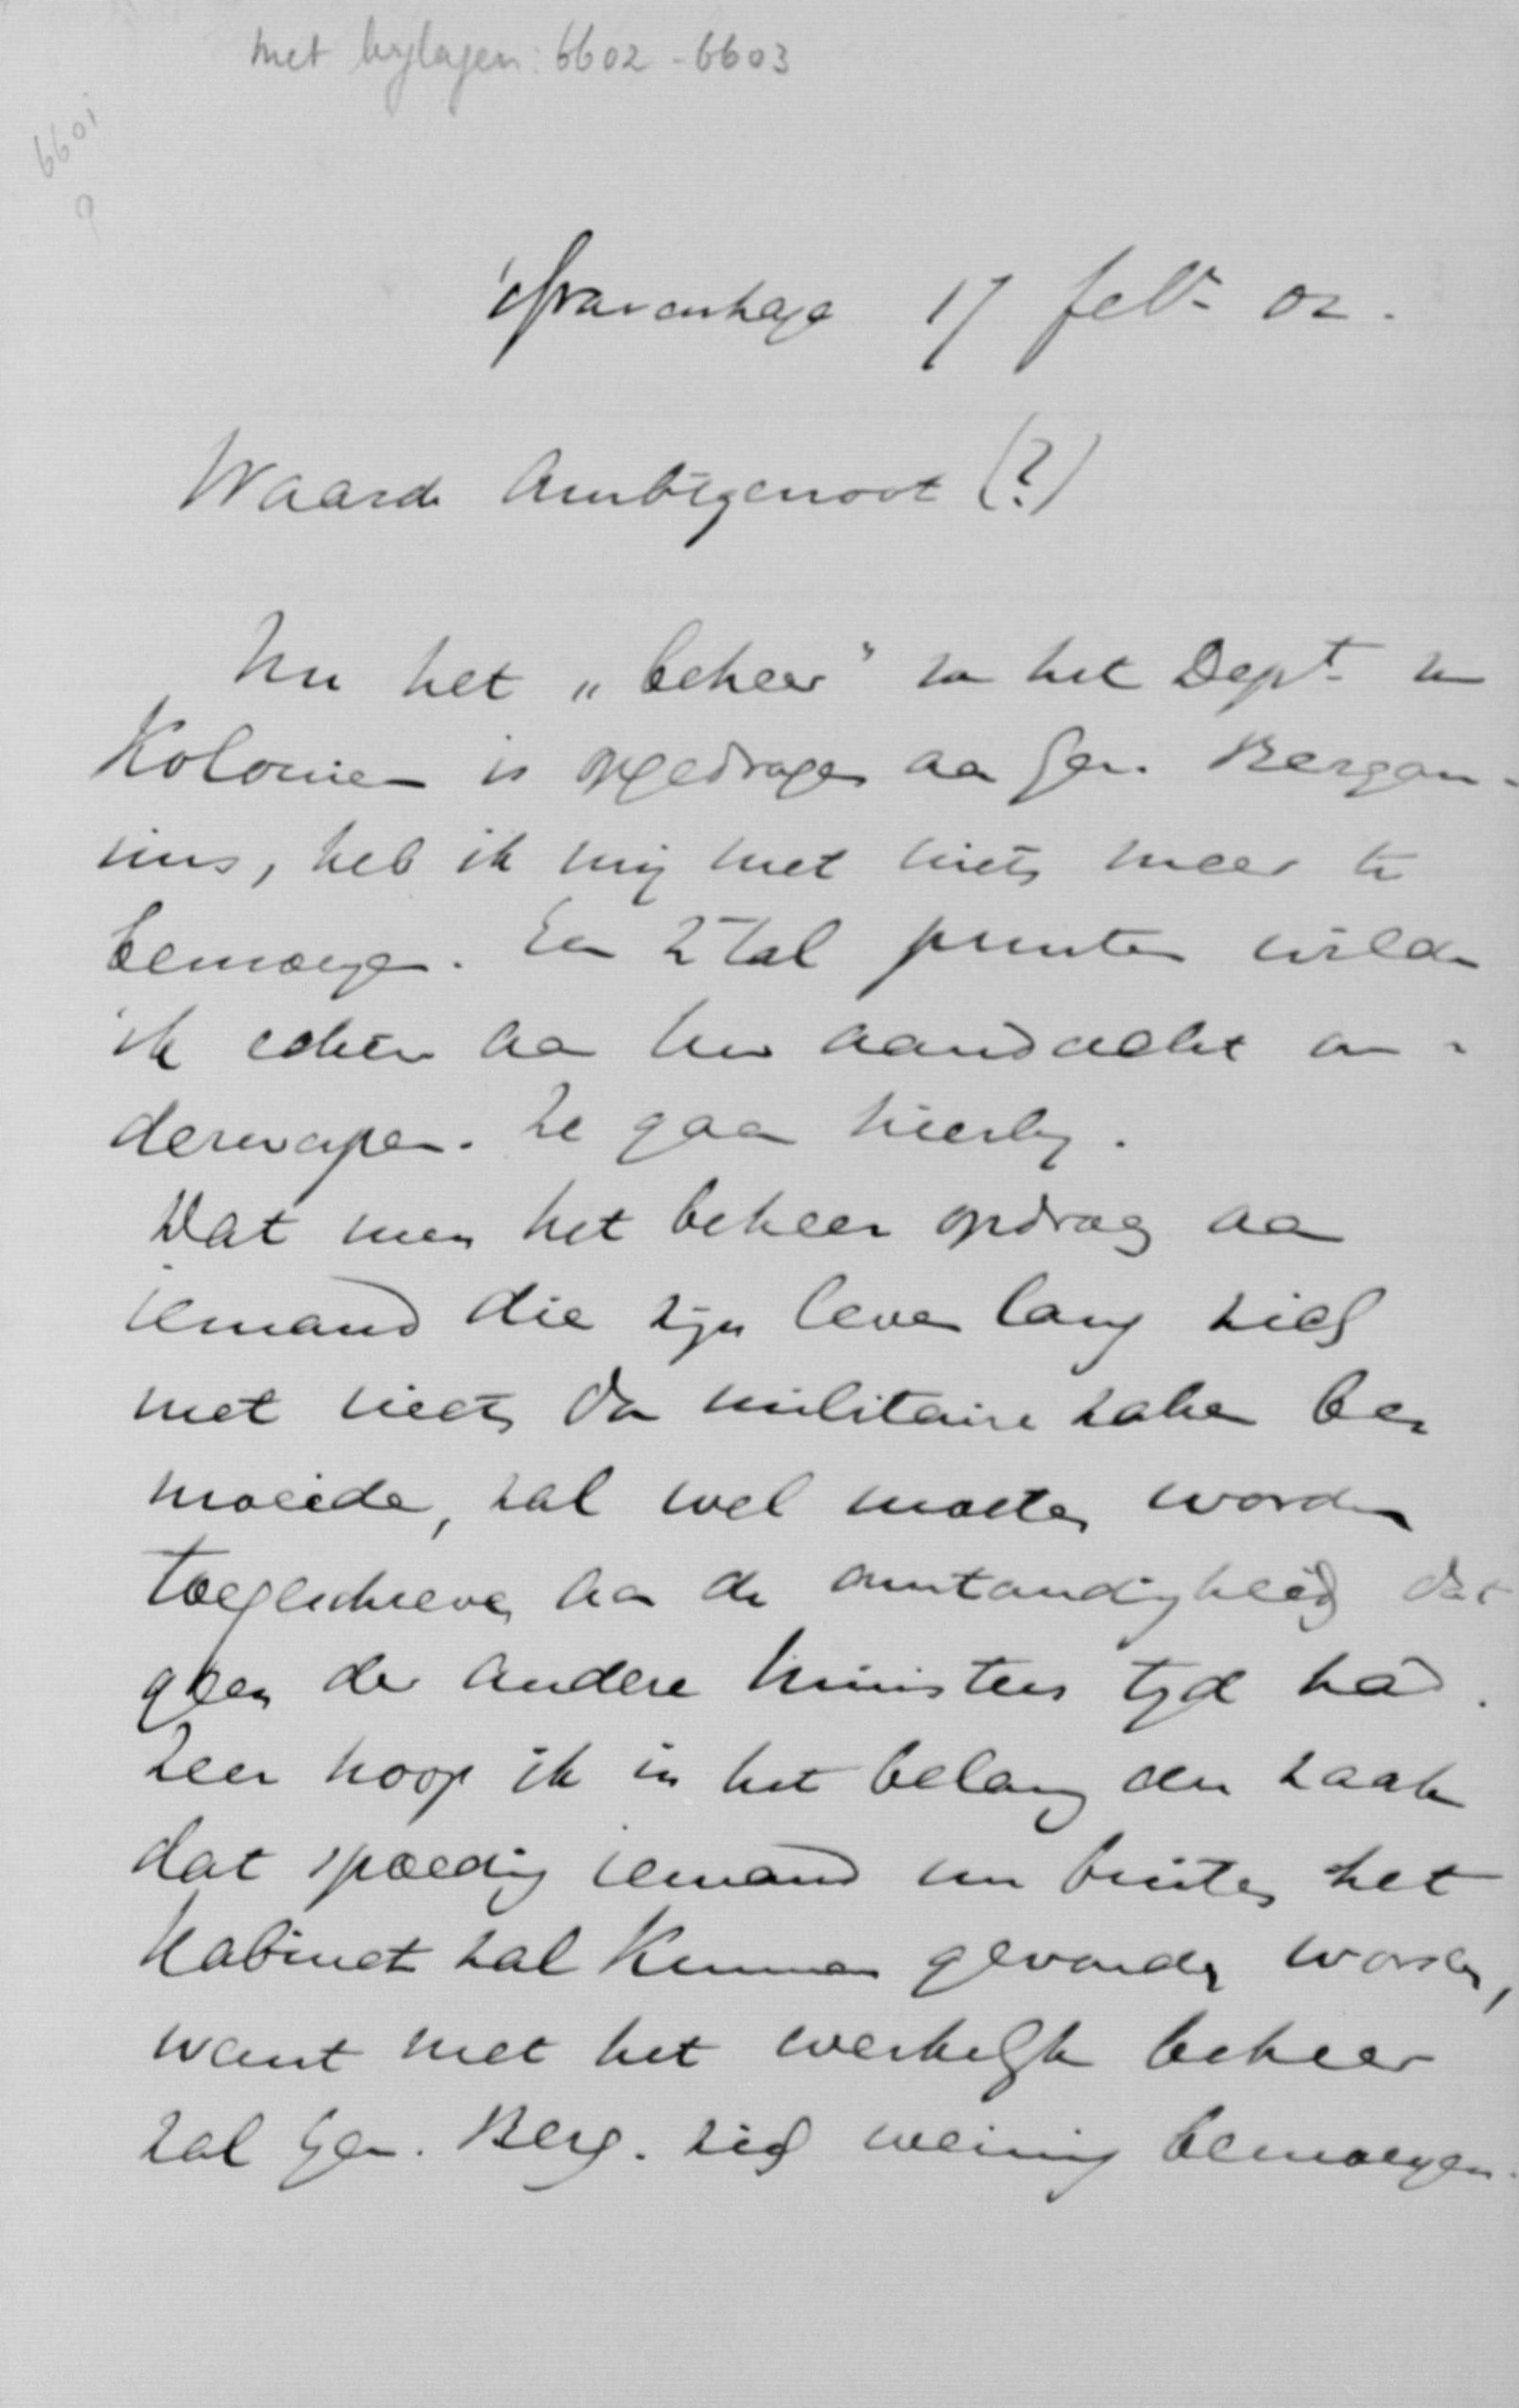 met bylagen: 6602 - 6603
6601
9
'sGravenhage 17 febr. 02.
Waarde Ambtgenoot (?)
Nu het „beheer” van het Dept. van
Koloniën is opgedragen aan Gen. Bergan-
sius, heb ik mij met niets meer te
bemoeyen. Een 2 tal punten wilde
ik echter aan Uw aandacht on-
derwerpen. Ze gaan hierby.
Dat men het beheer opdroeg aan
iemand die zijn leven lang zich
met niets dan militaire zaken be-
moeide, zal wel moeten worden
toegeschreven aan de omstandigheid dat
geen der andere ministers tyd had.
Zeer hoop ik in het belang der zaak
dat spoedig iemand van buiten het
Kabinet zal kunnen gevonden worden,
want met het werkelyk beheer
zal Gen. Berg. zich weinig bemoeyen.